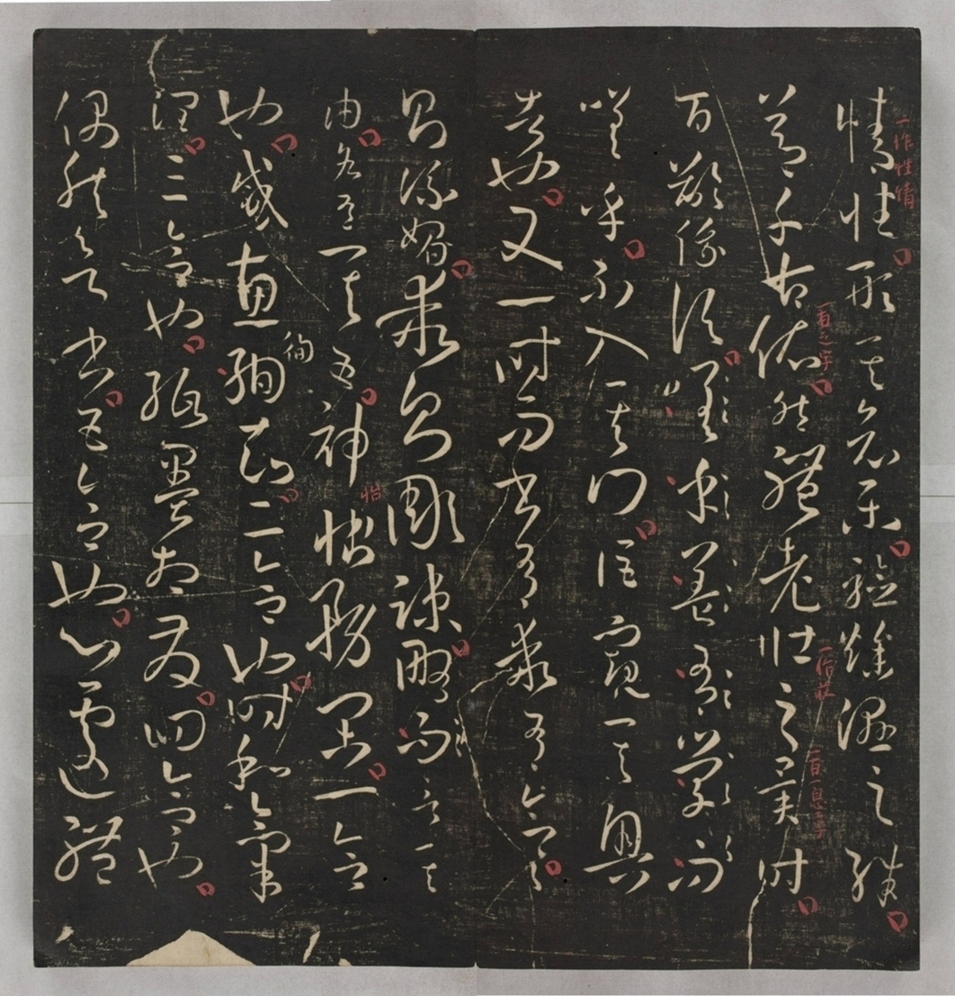 情性形其哀樂驗燥濕之殊
節千古依然體老壯之異時
百齡俄頃嗟乎蓋有學而
嗟乎不入其門詎窺其奧
者也又一時而書有乖有合合
則流媚乖則彫疎略而言其
由各有其五神怡務閑一合
也感惠徇知二合也時和氣
潤三合也紙墨相發四合也
偶然欲書五合也心遽體
一作性情
怡
徇